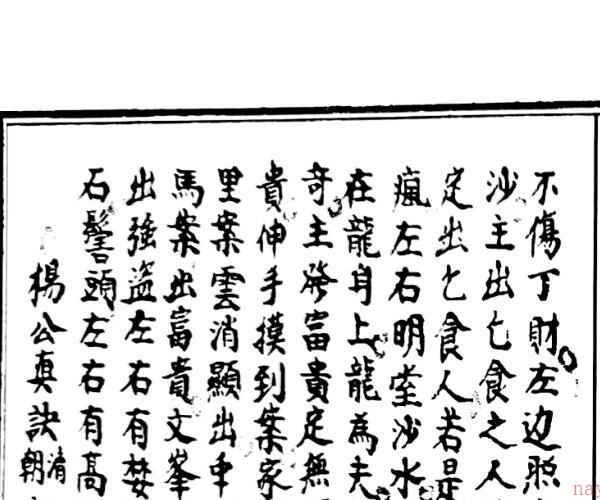 不傷丁財左边
沙主出乞食之人
定出乞食人若是
瘋左右明堂沙水
在龍身上龍為夫
奇主發富貴定無
貴伸手摸到案家
里案雲消顯出
馬案出富貴文峯
出強盜左右有
石髻頭左右有高
楊公真訣
清朝